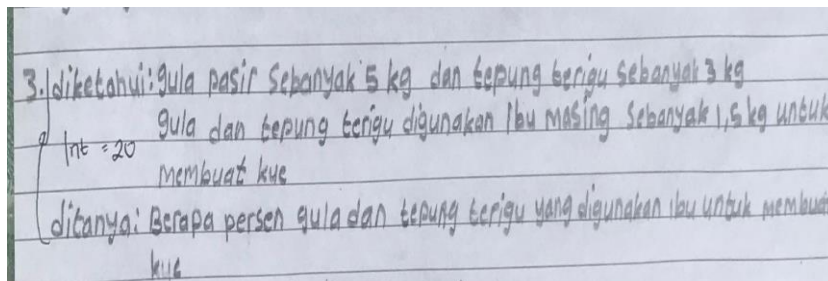 3. diketahui: gula pasir sebanyak 5 kg dan tepung terigu sebanyak 3 kg
gula dan tepung terigu digunakan Ibu masing sebanyak 1,5 kg untuk
Int = 20
membuat kue
ditanya: Berapa persen gula dan tepung terigu yang digunakan ibu untuk membuat
kue